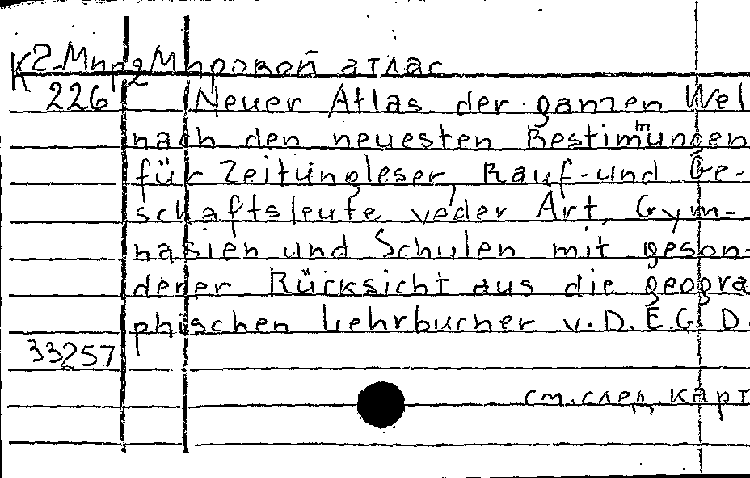 К2-Мир2 Мировой атлас
226 Neuer Atlas der ganzen Wel
nach den neuesten Bestimmungen
für Zeitungleser, Kauf-und Ge-
schaftsleute veder Art, Gym-
nasien und Schulen mit geson-
derer Rücksicht aus die geogra
phischen Lehrbucher v. D. E. G. D.
33257
см. след карт